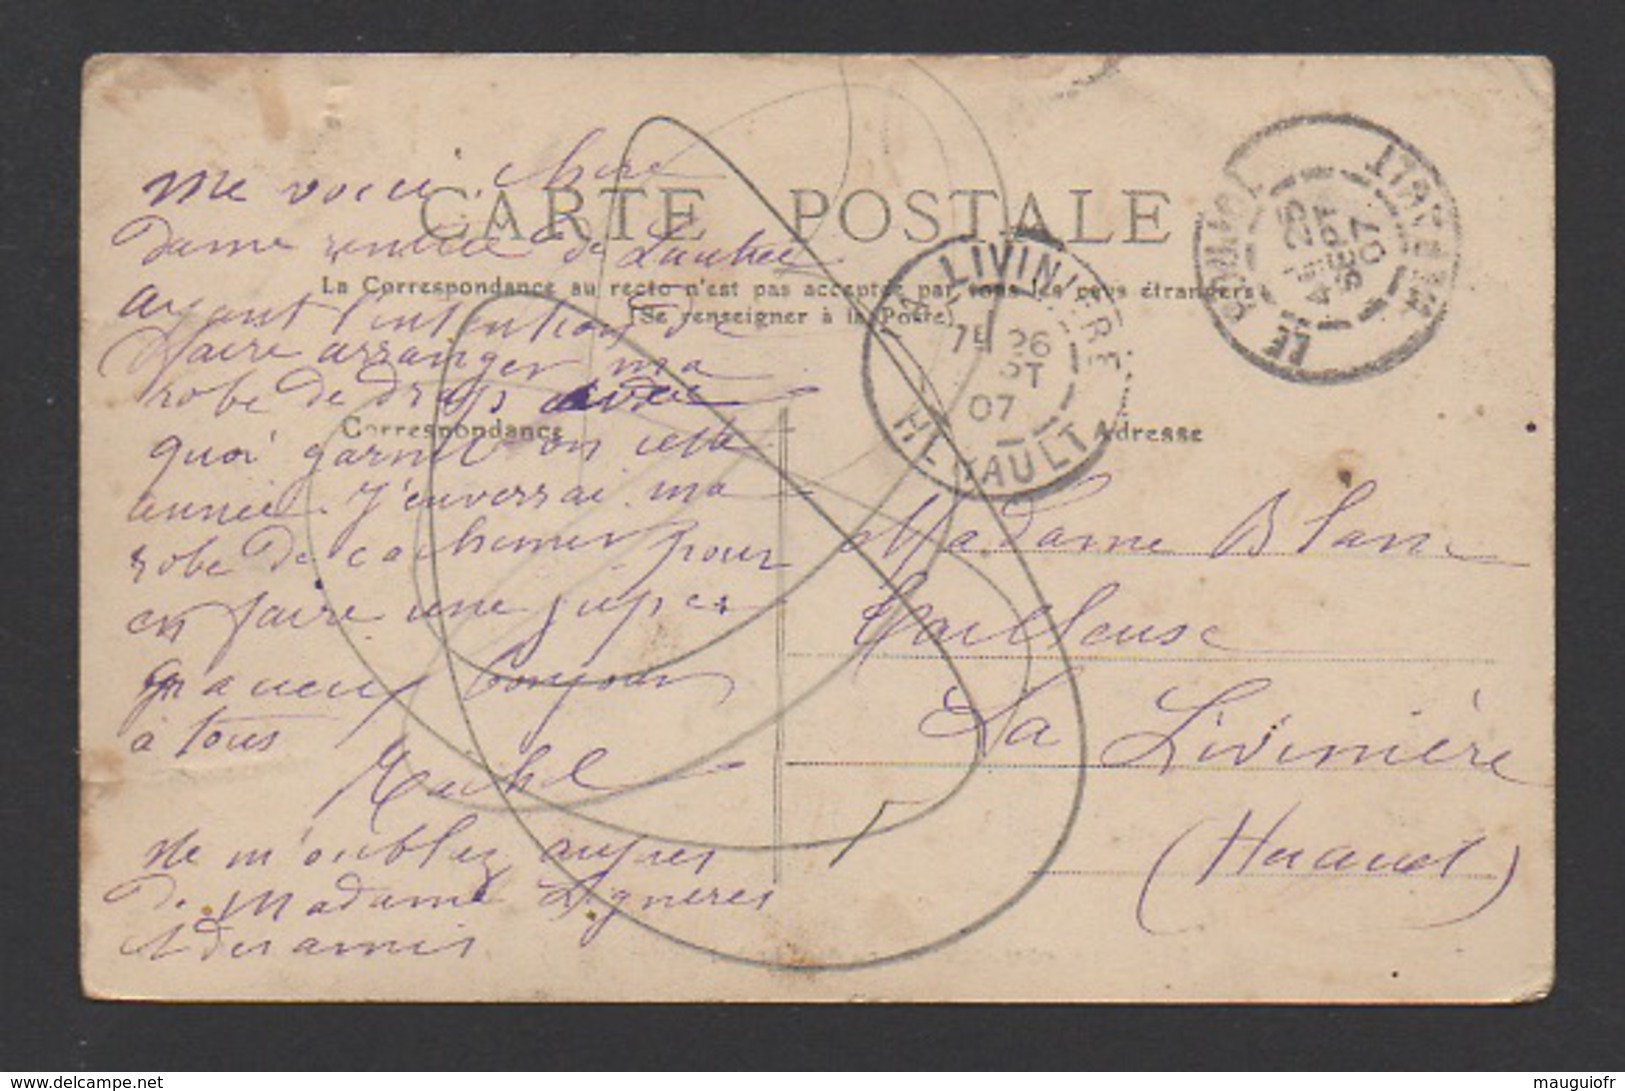 CARTE POSTALE
La Correspondance au recto n'est pas acceptée par tous les pays étrangers
(Se renseigner à la Poste)
Correspondance
Adresse
me voici chère
dame rentrée de Lautrec
ayant l'intention de
faire arranger ma
robe de drap avec
quoi garnit on cette
année. J'enverrai ma
robe de cachemir pour
en faire une jupe
bonjour
à tous
ne m'oubliez aupres
de Madame Lignères
et des amis
Madame Blanc
Tailleuse
La Livinière
(Hérault)
LA LIVINIÈRE
26
07
HÉRAULT
LE POUJOL
HÉRAULT
25
SEPT
07
www.delcampe.net
mauguiofr